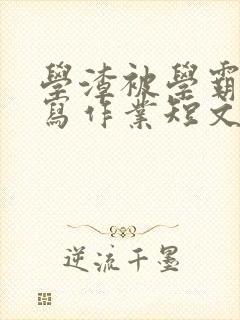 學渣被學霸
寫作業短文
逆流千墨